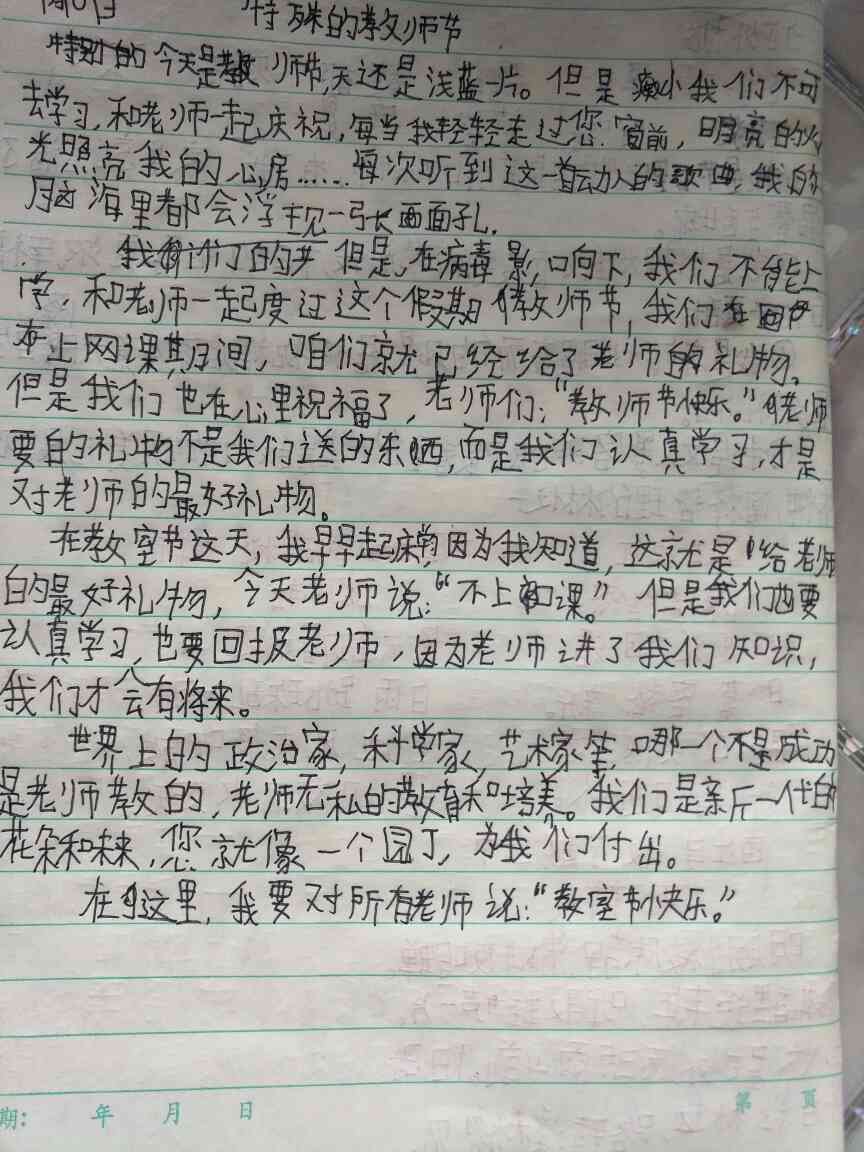 特殊的教师节
今天是教师节,天还是浅蓝一片。但是我们不可
去学习,和老师一起庆祝,每当我轻轻走过您窗前,明亮的火
光照亮我的心房……每次听到这一首动人的歌曲,我的
脑海里都会浮现一张画面孔.
但是,在病毒影响下,我们不能上
学,和老师一起度过这个假期教师节,我们在
上网课其月间,咱们就已经给了老师的礼物。
但是我们也在心里祝福了,老师们:“教师节快乐。”老师
要的礼物不是我们送的东西,而是我们认真学习,才是
对老师的最好礼物。
在教室节这天,我早早起床,因为我知道,这就是给老师
的最好礼物,今天老师说:“不上课。”但是我们也要
认真学习,也要回报老师,因为老师讲了我们知识,
我们才会有将来。
世界上的政治家,科学家,艺术家等,哪一个不是成功
是老师教的,老师无私的教育和培养。我们是新一代的
花朵和未来,您就像一个园丁,为我们付出。
在这里,我要对所有老师说:“教室节快乐。”
期: 年 月 日
第 页